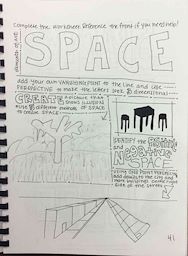 Complete the worksheet. Reference the front if you need help!
Elements of Art:
SPACE
add your own VANISHING POINT to the line and use
PERSPECTIVE to make the letters look 3 dimensional
CREATE a picture that
shows illusion
use 3 different methods of SPACE
to create SPACE
IDENTIFY the POSITIVE
and
NEGATIVE
SPACE
Using one Point Perspective
add details to the city and
more buildings on the right
side of the street
41